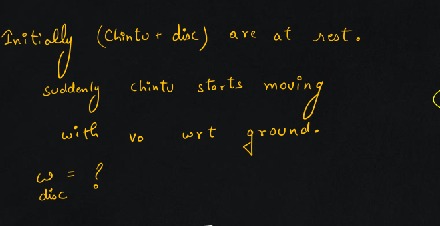 Initially (Chintu + disc) are at rest.
suddenly chintu starts moving
with v0 wrt ground.
ω = ?
disc